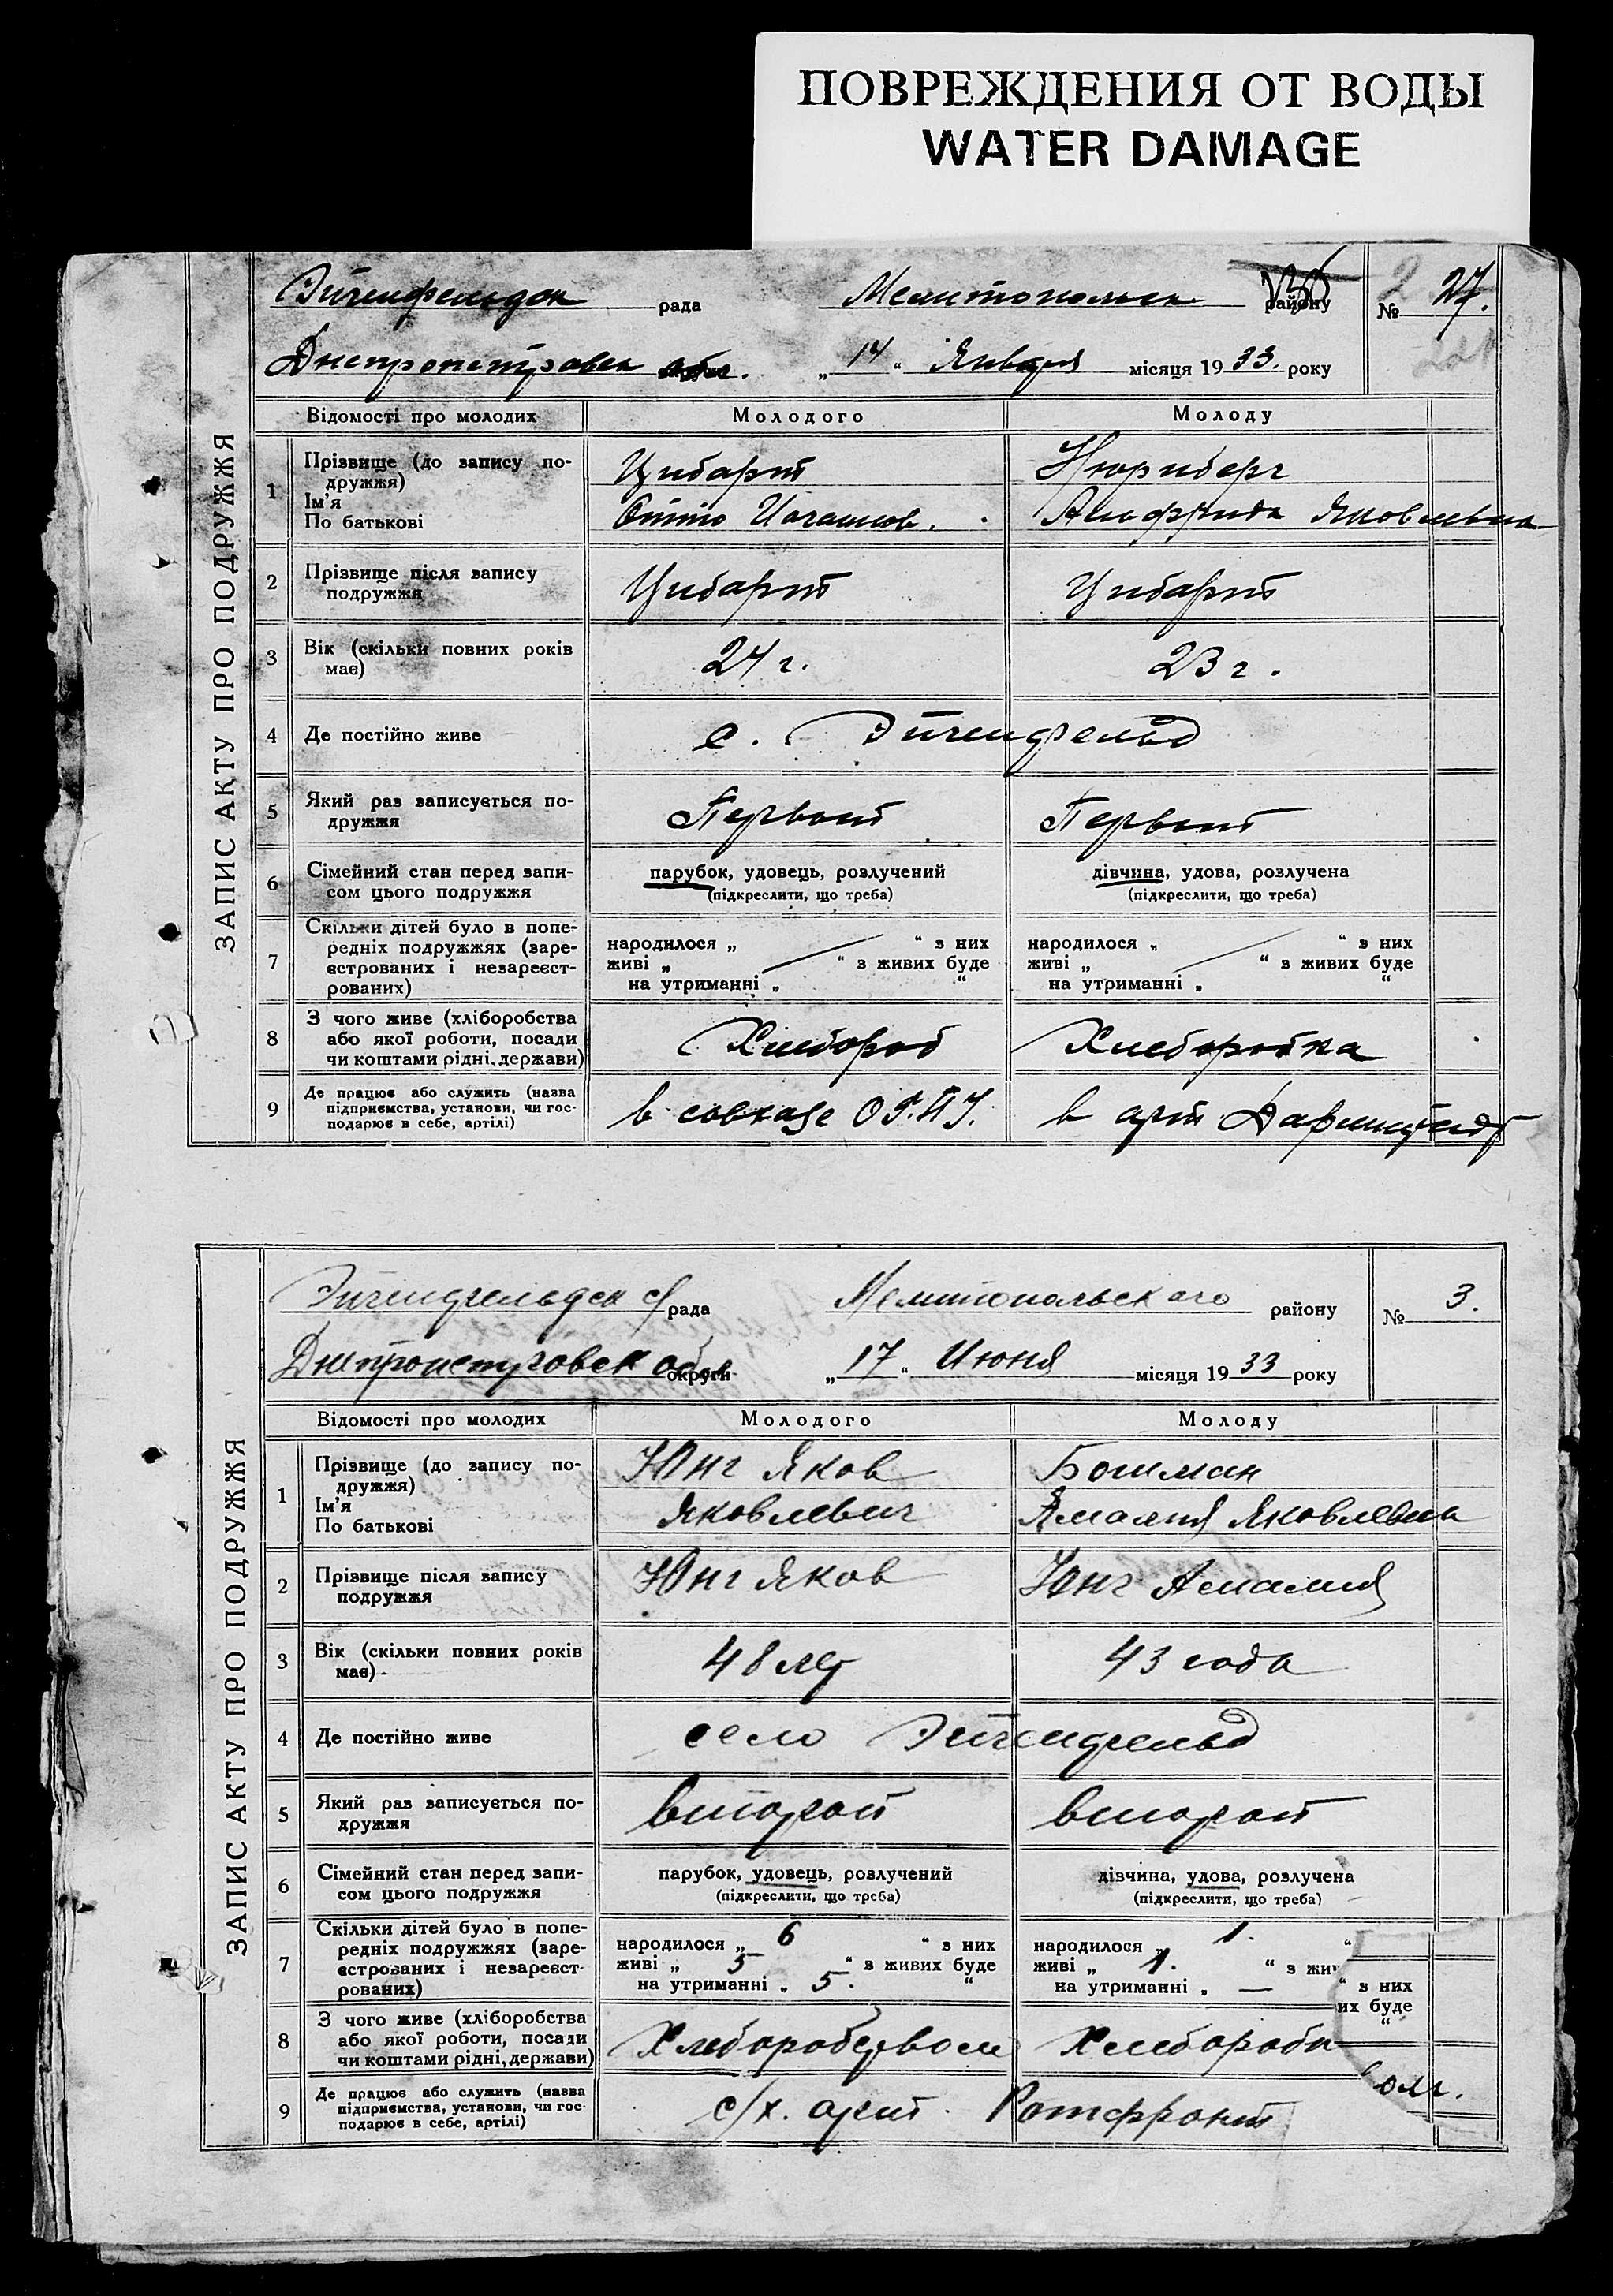 ПОВРЕЖДЕНИЯ ОТ ВОДЫ
WATER DAMAGE
ЗАПИС АКТУ ПРО ПОДРУЖЖЯ
Эйгенфельдск рада Мелитопольск району № 27.
Днепропетровск обл. „14“ Января місяця 1933. року
Відомості про молодих Молодого Молоду
1 Прізвище (до запису по- Цибарт Нюрнберг
дружжя)
Ім’я
По батькові Отто Иоганнов. Альффрида Яковлевна
2 Прізвище після запису Цибарт Цибарт
подружжя
3 Вік (скільки повних років 24 г. 23 г.
має)
4 Де постійно живе с. Эйгенфельд
5 Який раз записується по- Первый Первый
дружжя
6 Сімейний стан перед запи- парубок, удовець, розлучений дівчина, удова, розлучена
сом цього подружжя (підкреслити, що треба) (підкреслити, що треба)
Скільки дітей було в попе-
7 редніх подружжях (заре- народилося „ “ з них народилося „ “ з них
єстрованих і незареєст- живі „ “ з живих буде живі „ “ з живих буде
рованих) на утриманні „ “ на утриманні „ “
8 З чого живе (хліборобства Хлебороб Хлеборобка
або якої роботи, посади
чи коштами рідні, держави)
9 Де працює або служить (назва в совхозе О.Г.П.У. в арт Дармштадт
підприємства, установи, чи гос-
подарює в себе, артілі)
ЗАПИС АКТУ ПРО ПОДРУЖЖЯ
Эйгенфельдск с/рада Мелитопольского району № 3.
Днепропетровск обл округи „17“ Июня місяця 1933 року
Відомості про молодих Молодого Молоду
1 Прізвище (до запису по- Юнг Яков Бошман
дружжя)
Ім’я
По батькові Яковлевич Амалия Яковлевна
2 Прізвище після запису Юнг Яков Юнг Амалия
подружжя
3 Вік (скільки повних років 48 лет 43 года
має)
4 Де постійно живе село Эйгенфельд
5 Який раз записується по- второй второй
дружжя
6 Сімейний стан перед запи- парубок, удовець, розлучений дівчина, удова, розлучена
сом цього подружжя (підкреслити, що треба) (підкреслити, що треба)
Скільки дітей було в попе-
7 редніх подружжях (заре- народилося „ 6 “ з них народилося „ 1. “
єстрованих і незареєст- живі „ 5 “ з живих буде живі „ 1. “ з жи
рованих) на утриманні „ 5. “ на утриманні „ — “ з них
их буде
“
8 З чого живе (хліборобства Хлеборобством Хлебороб
або якої роботи, посади
чи коштами рідні, держави)
9 Де працює або служить (назва с/х. арт. Ротфронт
підприємства, установи, чи гос-
подарює в себе, артілі)